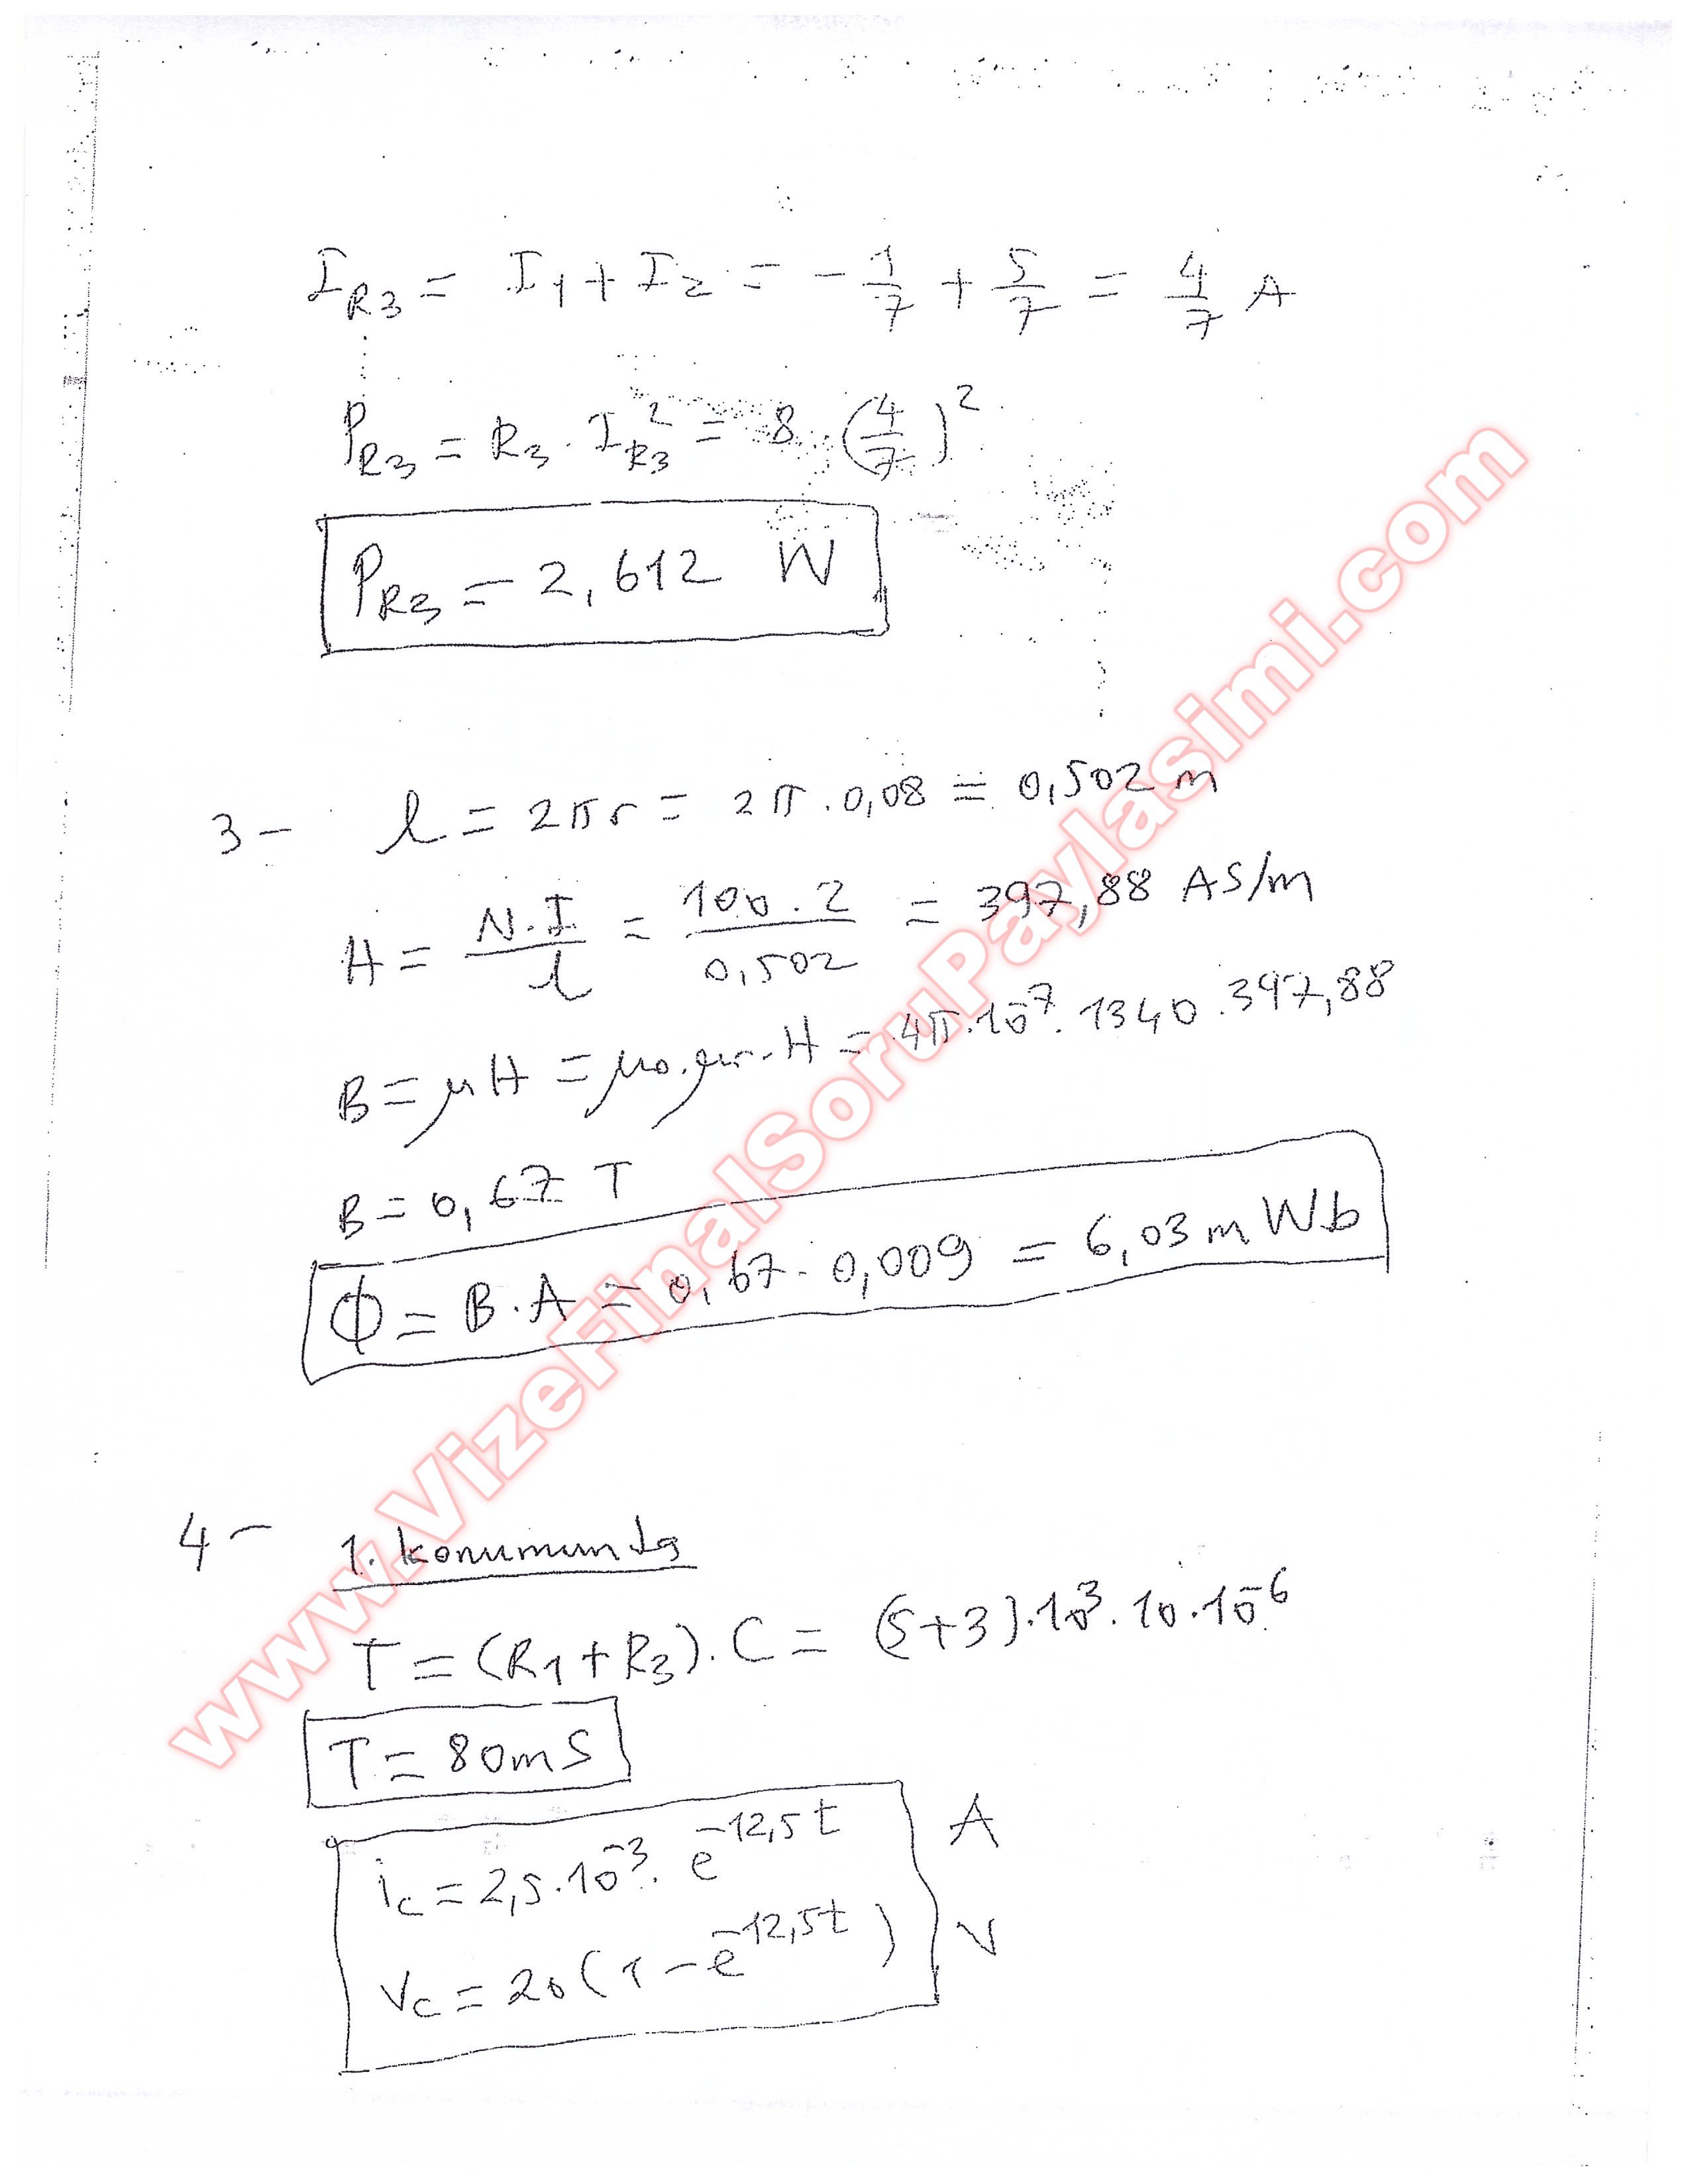 I_R3 = I_1 + I_2 = -1/7 + 5/7 = 4/7 A
P_R3 = R_3 . I_R3^2 = 8 . (4/7)^2
P_R3 = 2,612 W
3- l = 2πr = 2π.0,08 = 0,502 m
H = N.I/l = 100.2/0,502 = 397,88 AS/m
B = μH = μo.μr.H = 4π.10^-7.1340.397,88
B = 0,67 T
Φ = B.A = 0,67.0,009 = 6,03 m Wb
4- 1. konumunda
T = (R_1 + R_3).C = (5+3).10^3.10.10^-6
T = 80mS
i_c = 2,5.10^-3. e^-12,5t A
V_c = 20(1-e^-12,5t) V
www.VizeFinalSoruPaylasimi.com